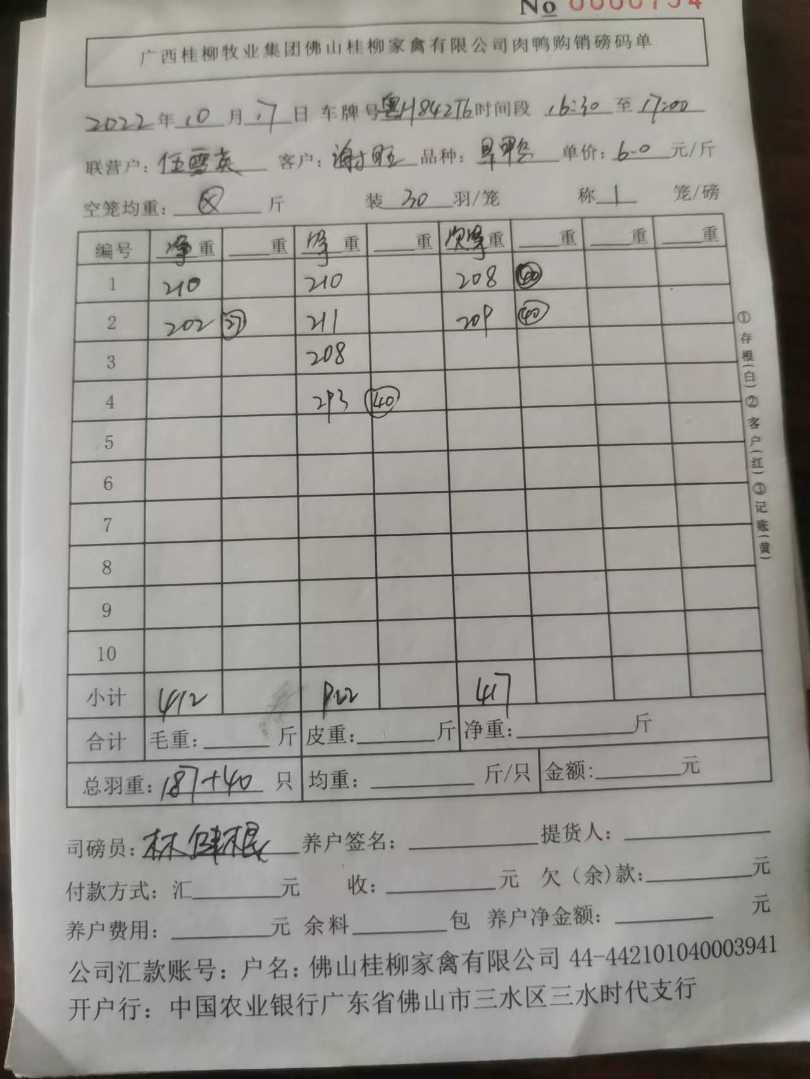 No
广西桂柳牧业集团佛山桂柳家禽有限公司肉鸭购销磅码单
2022年10月17日 车牌号粤H842T6时间段 16:30至17:00
联营户: 伍雪英 客户: 谢旺 品种: 旱鸭 单价: 6.0元/斤
空笼均重: 斤 装30羽/笼 称1笼/磅
编号 净重 重 净重 重 次净重 重 重 重
1 210 210 208
2 202 27 211 209 40
3 208
4 293 40
5
6
7
8
9
10
小计 412 922 417
合计 毛重: 斤 皮重: 斤 净重: 斤
总羽重: 187+40只 均重: 斤/只 金额: 元
①存根(白)②客户(红)③记账(黄)
司磅员: 林健根 养户签名: 提货人:
付款方式: 汇 元 收: 元 欠(余)款: 元
养户费用: 元 余料 包 养户净金额: 元
公司汇款账号: 户名: 佛山桂柳家禽有限公司 44-442101040003941
开户行: 中国农业银行广东省佛山市三水区三水时代支行